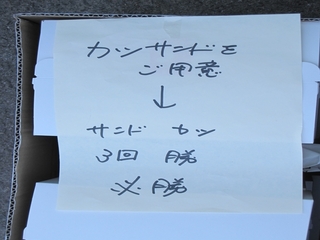 カツサンドを
ご用意
↓
サンド カツ
3回 勝
必勝